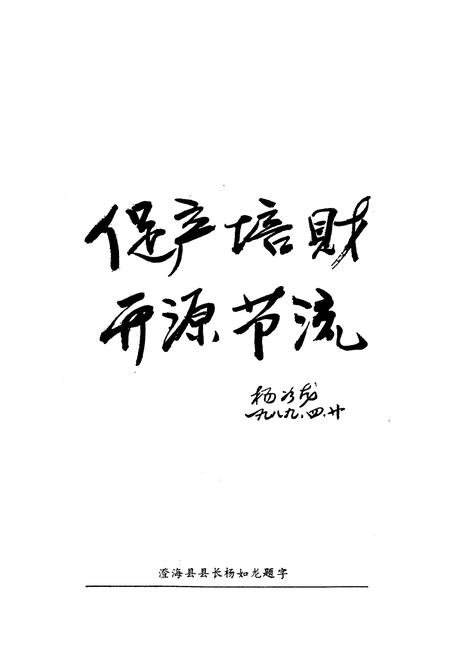 促产培财
开源节流
杨如龙
一九八九.四.廿
澄海县县长杨如龙题字